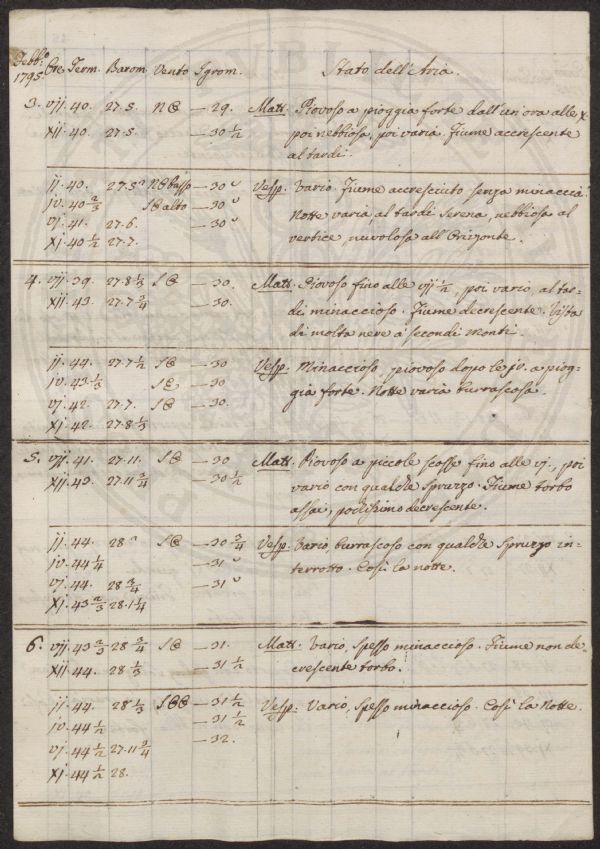 Febb.º
1795. Ore Term. Barom. Vento Igrom. Stato dell'Aria.
3. vij. 40. 27.5. N — 29. Matt. Piovoso a pioggia forte dall'un'ora alle x.
xij. 40. 27.5. — 30 1/2 poi nebbioso, poi varia. Fiume accrescente
al tardi.
ij. 40. 27.5 basso — 30 Vesp. Vario. Fiume accresciuto senza minaccia.
iv. 40 2/3 alto — 30 Notte varia, al tardi Serena, nebbiosa al
vj. 41. 27.6. — 30 vertice, nuvolosa all'Orizonte.
xj. 40 1/2 27.7.
4. vij. 39. 27.8 1/3 S — 30. Matt. Piovoso fino alle vij 1/2, poi vario, al tar-
xij. 43. 27.7 3/4 — 30. di minaccioso. Fiume decrescente. Vista
di molta neve a' secondi Monti.
ij. 44. 27.7 1/2 S — 30 Vesp. Minaccioso, piovoso dopo le iv. a piog-
iv. 43 1/3 S — 30. gia forte. Notte varia burrascosa.
vj. 42. 27.7. S — 30.
xj. 42. 27.8 1/3
5. vij. 41. 27.11. S — 30 Matt. Piovoso a piccole scosse fino alle vj., poi
xij. 43. 27.11 3/4 — 30 1/2 vario con qualche spruzzo. Fiume torbo
assai, pochissimo decrescente.
ij. 44. 28 S — 30 3/4 Vesp. Vario, burrascoso con qualche spruzzo in-
iv. 44 1/4 — 31 terrotto. Così la notte.
vj. 44. 28 3/4 — 31
xj. 43 2/3 28. 1 1/4
6. vij. 43 2/3 28 3/4 S — 31. Matt. Vario, spesso minaccioso. Fiume non de-
xij. 44. 28 1/3 — 31 1/2 crescente torbo.
ij. 44. 28 1/3 S — 31 1/2 Vesp. Vario, spesso minaccioso. Così la Notte.
iv. 44 1/2 — 31 1/2
vj. 44 1/2 27.11 3/4 — 32.
xj. 44 1/2 28.